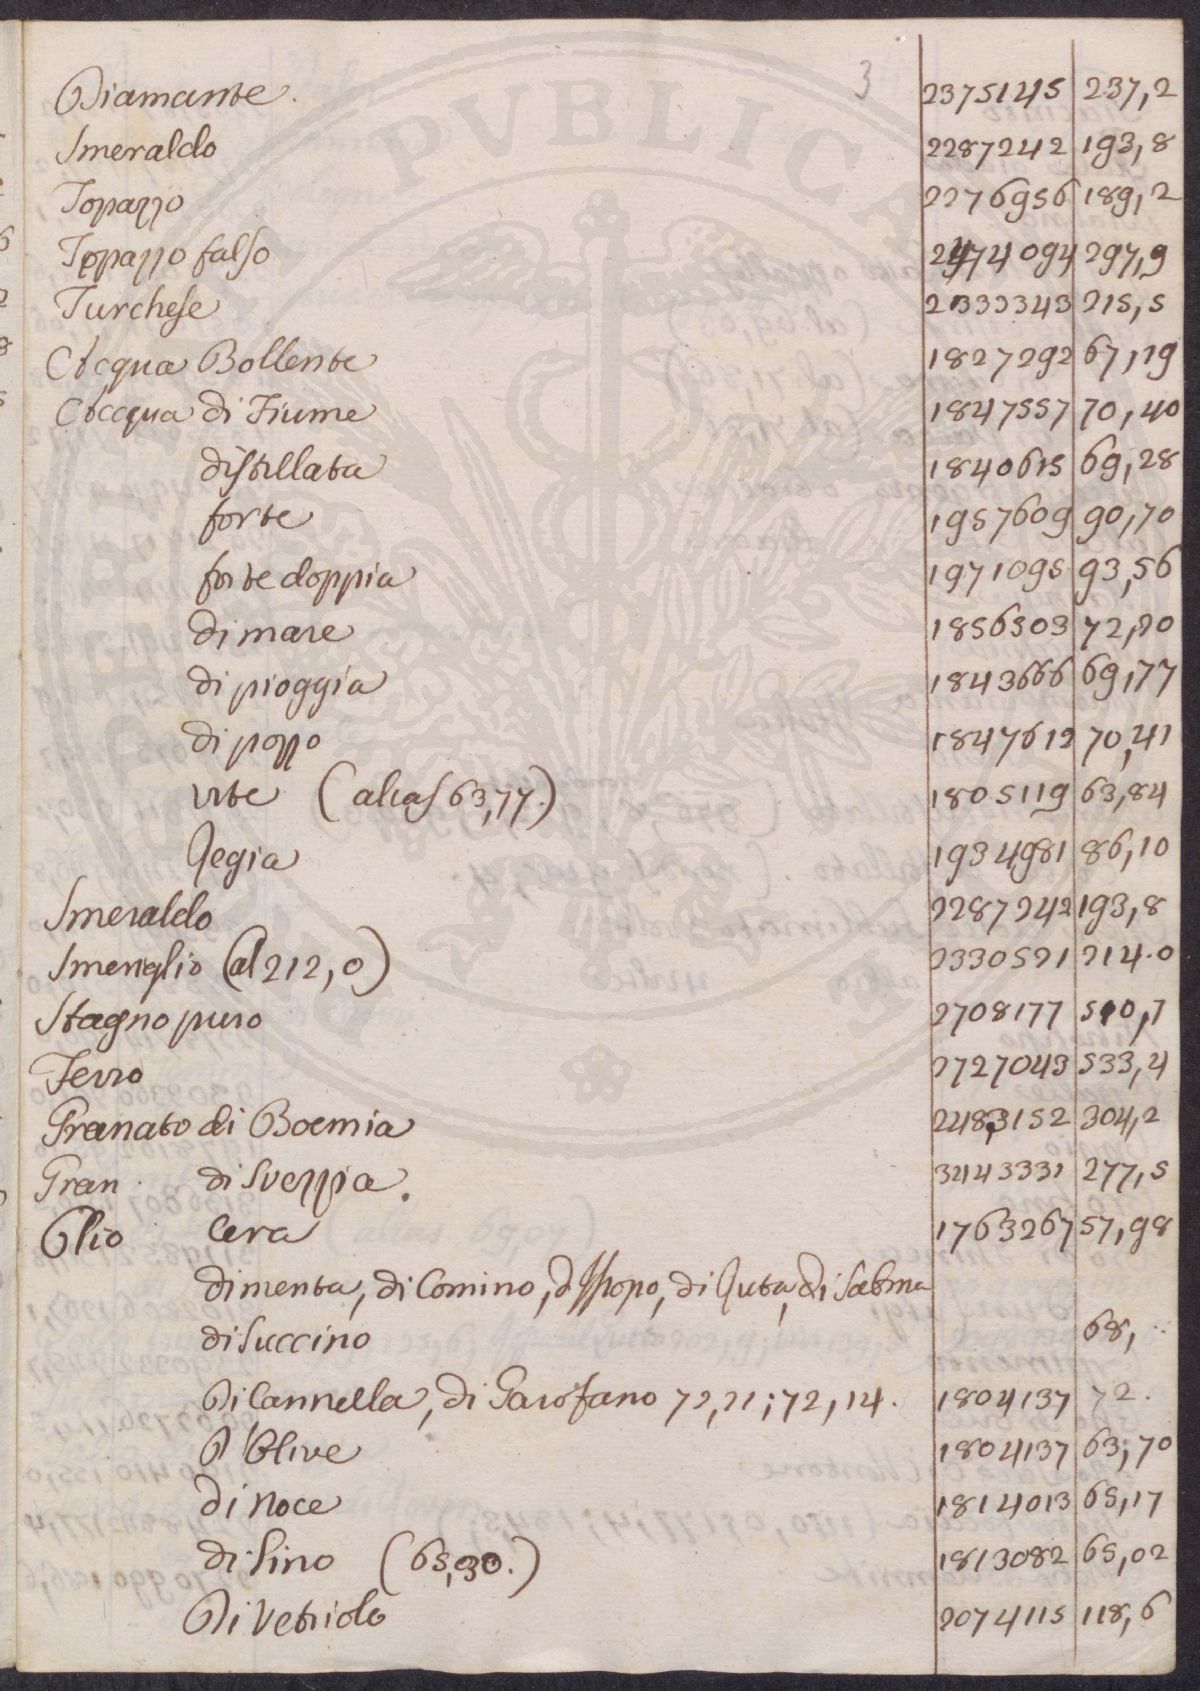 3
Diamante. 2375145 237,2
Smeraldo 2287242 193,8
Topazzo 2276956 189,2
Topazzo falso 2474094 297,9
Turchese 2333343 215,5
Acqua Bollente 1827292 67,19
Acqua di Fiume 1847557 70,40
distillata 1840615 69,28
forte 1957609 90,70
forte doppia 1971095 93,56
di mare 1856303 72,20
di pioggia 1843666 69,77
di pozzo 1847612 70,41
vite (alias 63,77.) 1805119 63,84
Regia 1934981 86,10
Smeraldo 2287242 193,8
Smeriglio (al 212,0) 2330521 214.0
Stagno puro 2708177 510,7
Ferro 2727043 533,4
Granato di Boemia 2483152 304,2
Gran. di Svezzia. 3443331 277,5
Olio Cera 1763267 57,98
di menta, di Comino, d'Isopo, di Ruta, di Sabina
di Succino 68,
di Cannella, di Garofano 72,21; 72,14. 1804137 72.
d'Olive 1804137 63,70
di Noce 1814013 65,17
di Lino (65,30.) 1813082 65,02
di Vetriolo 2074115 118,6
PUBLICA